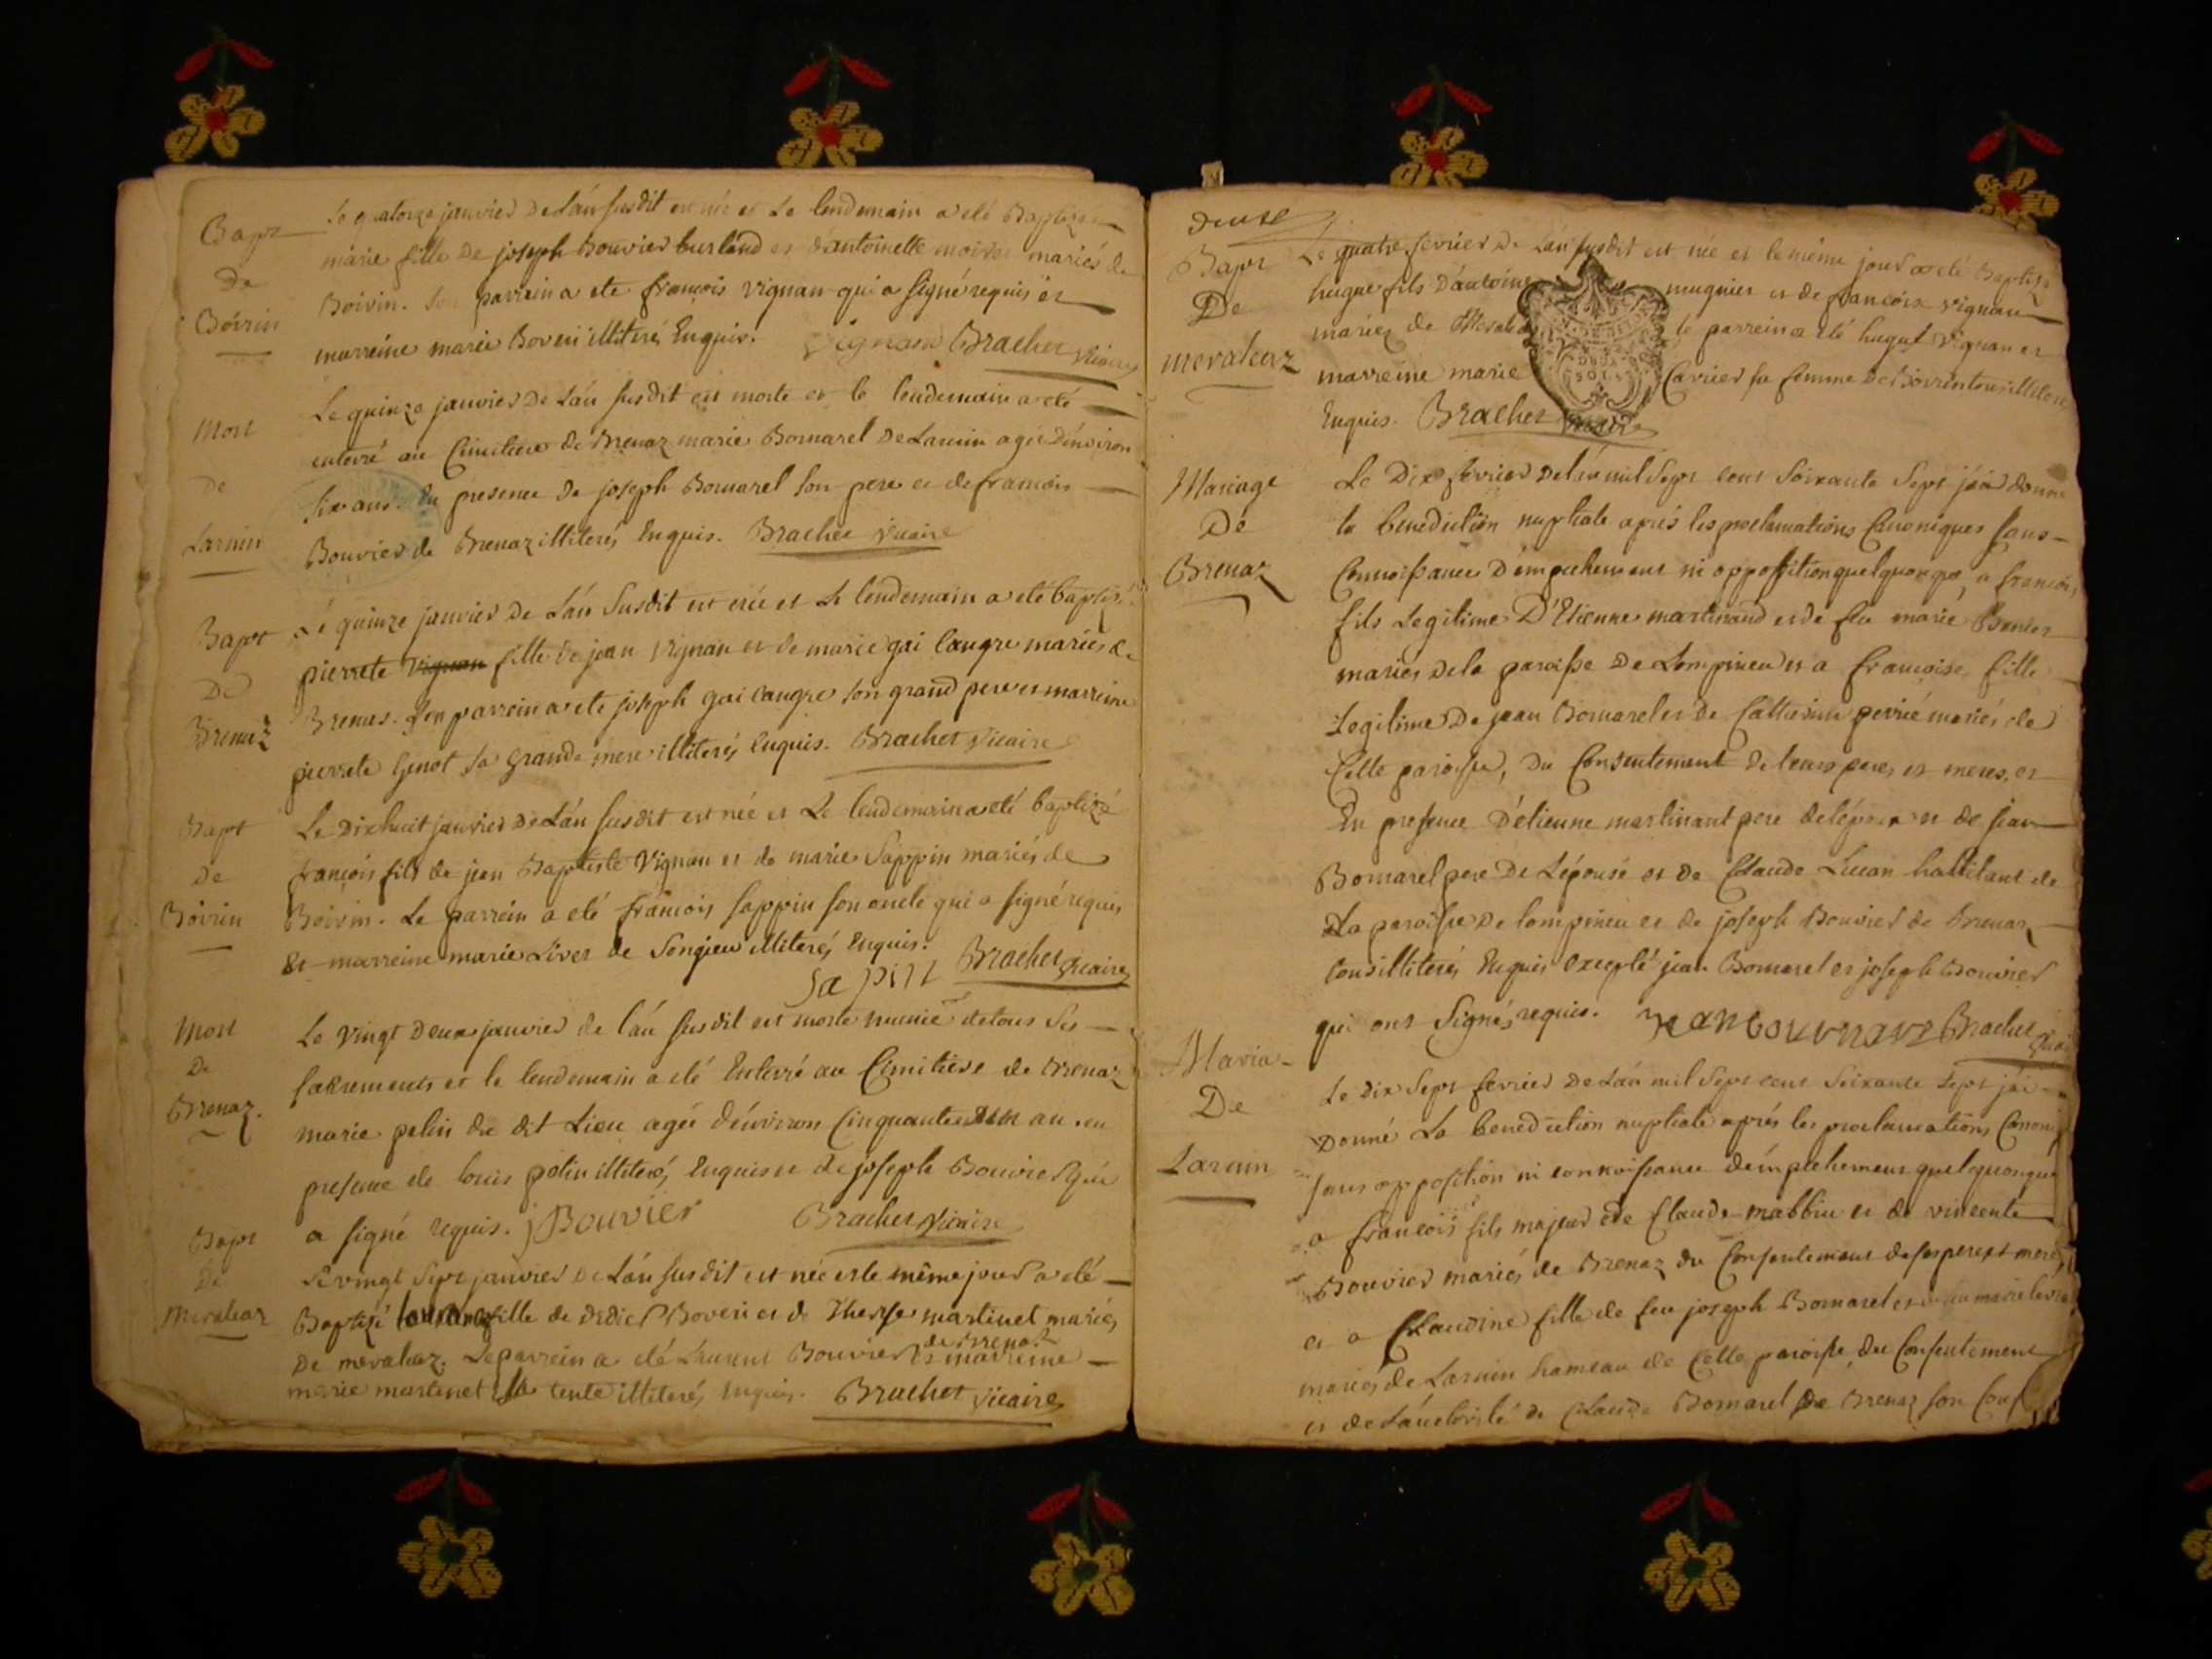 Bapt
De
Boirin
Le quatorze janvier De L'án susdit est née et Le lendemain a eté Baptizée
marie fille De joseph Bouvier burland et d'antoinette moine mariés de
Boirin. Son parrein a ete françois vignan qui a signé requis et
marreine marie Boveri illiterés Enquis. Vignan Brachet vicaire
Mort
De
Laruin
Le quinze janvier De L'án susdit est morte et le lendemain a eté
enterré au Cimitiere de Brenaz marie Bomarel De Laruin agée D'environ
six ans. En presence De joseph Bomarel son pere et de francois
Bouvier de Brenaz illiterés Enquis. Brachet vicaire
Bapt
De
Brenaz
Le quinze janvier De L'án Susdit est née et Le lendemain a eté baptizé
pierrete vignan fille de jean vignan et de marie gai langre mariés de
Brenas. Son parrein a ete joseph gai langre son grand pere et marreine
pierrete Genot sa grande mere illiterés Enquis. Brachet vicaire
Bapt
De
Boirin
Le Dixhuit janvier De L'án susdit est née et Le lendemain a eté baptizé
françois fils de jean Baptiste Vignan et de marie Sappin mariés de
Boirin. Le parrein a eté francois sappin son oncle qui a signé requis
Et marreine marie Livet de Songieu illiterés Enquis.
Sapin Brachet vicaire
Mort
De
Brenaz.
Le vingt Deux janvier de l'án susdit est morte munie de tous ses
sakrements et le lendemain a eté Enterré au Cimitiere de Brenaz
marie pelin du dit Lieu agée d'environ Cinquante an en
presence de louis pelin illiteré, Enquis et de joseph Bouvier qui
a signé requis. j Bouvier Brachet vicaire
Bapt
De
Meraleaz
Le vingt Sept janvier De L'án susdit est née et le même jour a eté
Baptizé fille de Boveri et de Therese martinet mariés
de Brenaz
De meraleaz. Le parrein a eté Laurent Bouvier et marreine
marie martinet sa tente illiterés, Enquis. Brachet vicaire
Deuse
Bapt
De
meraleaz
Le quatre fevrier De L'án susdit est née et le même jour a eté Baptizé
hugue fils D'antoine muguier et de françoise vignan
mariés de le parrein a eté hugue vignan et
marreine marie Carrier sa femme De Boirin tous illiteré
Enquis. Brachet vicaire
Mariage
De
Brenaz
Le Dix fevrier de L'án mil Sept cent Soixante Sept j'ái donné
la benediction nuptiale aprés les proclamations Canoniques sans
Connoissance D'empechement ni oppossition quelquonque, a francois
fils Legitime D'Etienne martinand et de feu marie
mariés de la paroisse De Lompineu et a françoise, fille
Legitime De jean Bomarel et De Catherine perrié mariés de
Cette paroisse, Du Consentement de leurs peres et meres, et
En presence D'étienne martinant pere de l'époux et de jean
Bomarel pere De L'épouse et De Claude Luean habitant de
La paroisse De lompineu et de joseph Bouvier de Brenaz
tous illiterés Enquis excepté jean Bomarel et joseph Bouvier
qui ont Signés, requis. Brachet
Maria
De
Laruin
Le dix Sept fevrier De L'án mil Sept cent Soixante Sept j'ái
Donné La benediction nuptiale aprés les proclamations
sans opposition ni connoissance d'émpechement quelquonque
a francois fils majeur de Claude mabbiu et de vincente
Bouvier mariés de Brenaz du Consentement de ses peres et mere
et a Claudine fille de feu joseph Bomarel et
mariés de Laruin hameau de Cette paroisse, du Consentement
et de L'áutorité de Claude Bomarel De Brenaz son